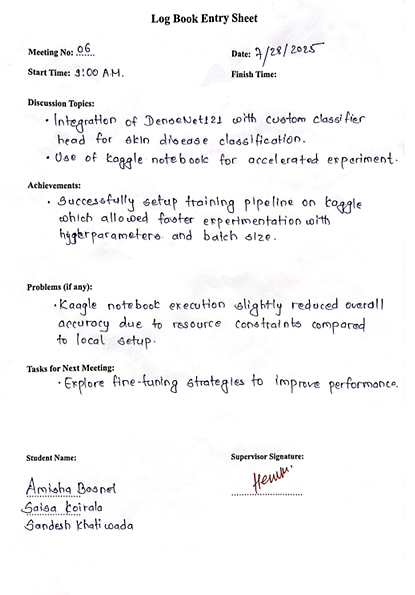 Log Book Entry Sheet
Meeting No: 06
Date: 7/28/2025
Start Time: 9:00 A.M.
Finish Time:
Discussion Topics:
• Integration of DenseNet121 with custom classifier
head for skin disease classification.
• Use of kaggle notebook for accelerated experiment.
Achievements:
• Successfully setup training pipeline on kaggle
which allowed faster experimentation with
hyperparameters and batch size.
Problems (if any):
• Kaagle notebook execution slightly reduced overall
accuracy due to resource constraints compared
to local setup.
Tasks for Next Meeting:
• Explore fine-tuning strategies to improve performance.
Student Name:
Supervisor Signature:
Amisha Basnet
Saisa Koirala
Sandesh Khatiwada